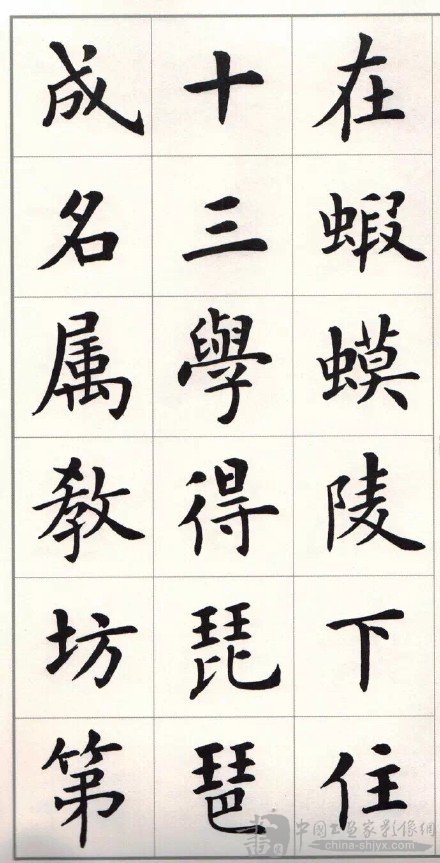 在蝦蟆陵下住
十三學得琵琶
成名属教坊第
中国书画家影像網
china-shjyx.com